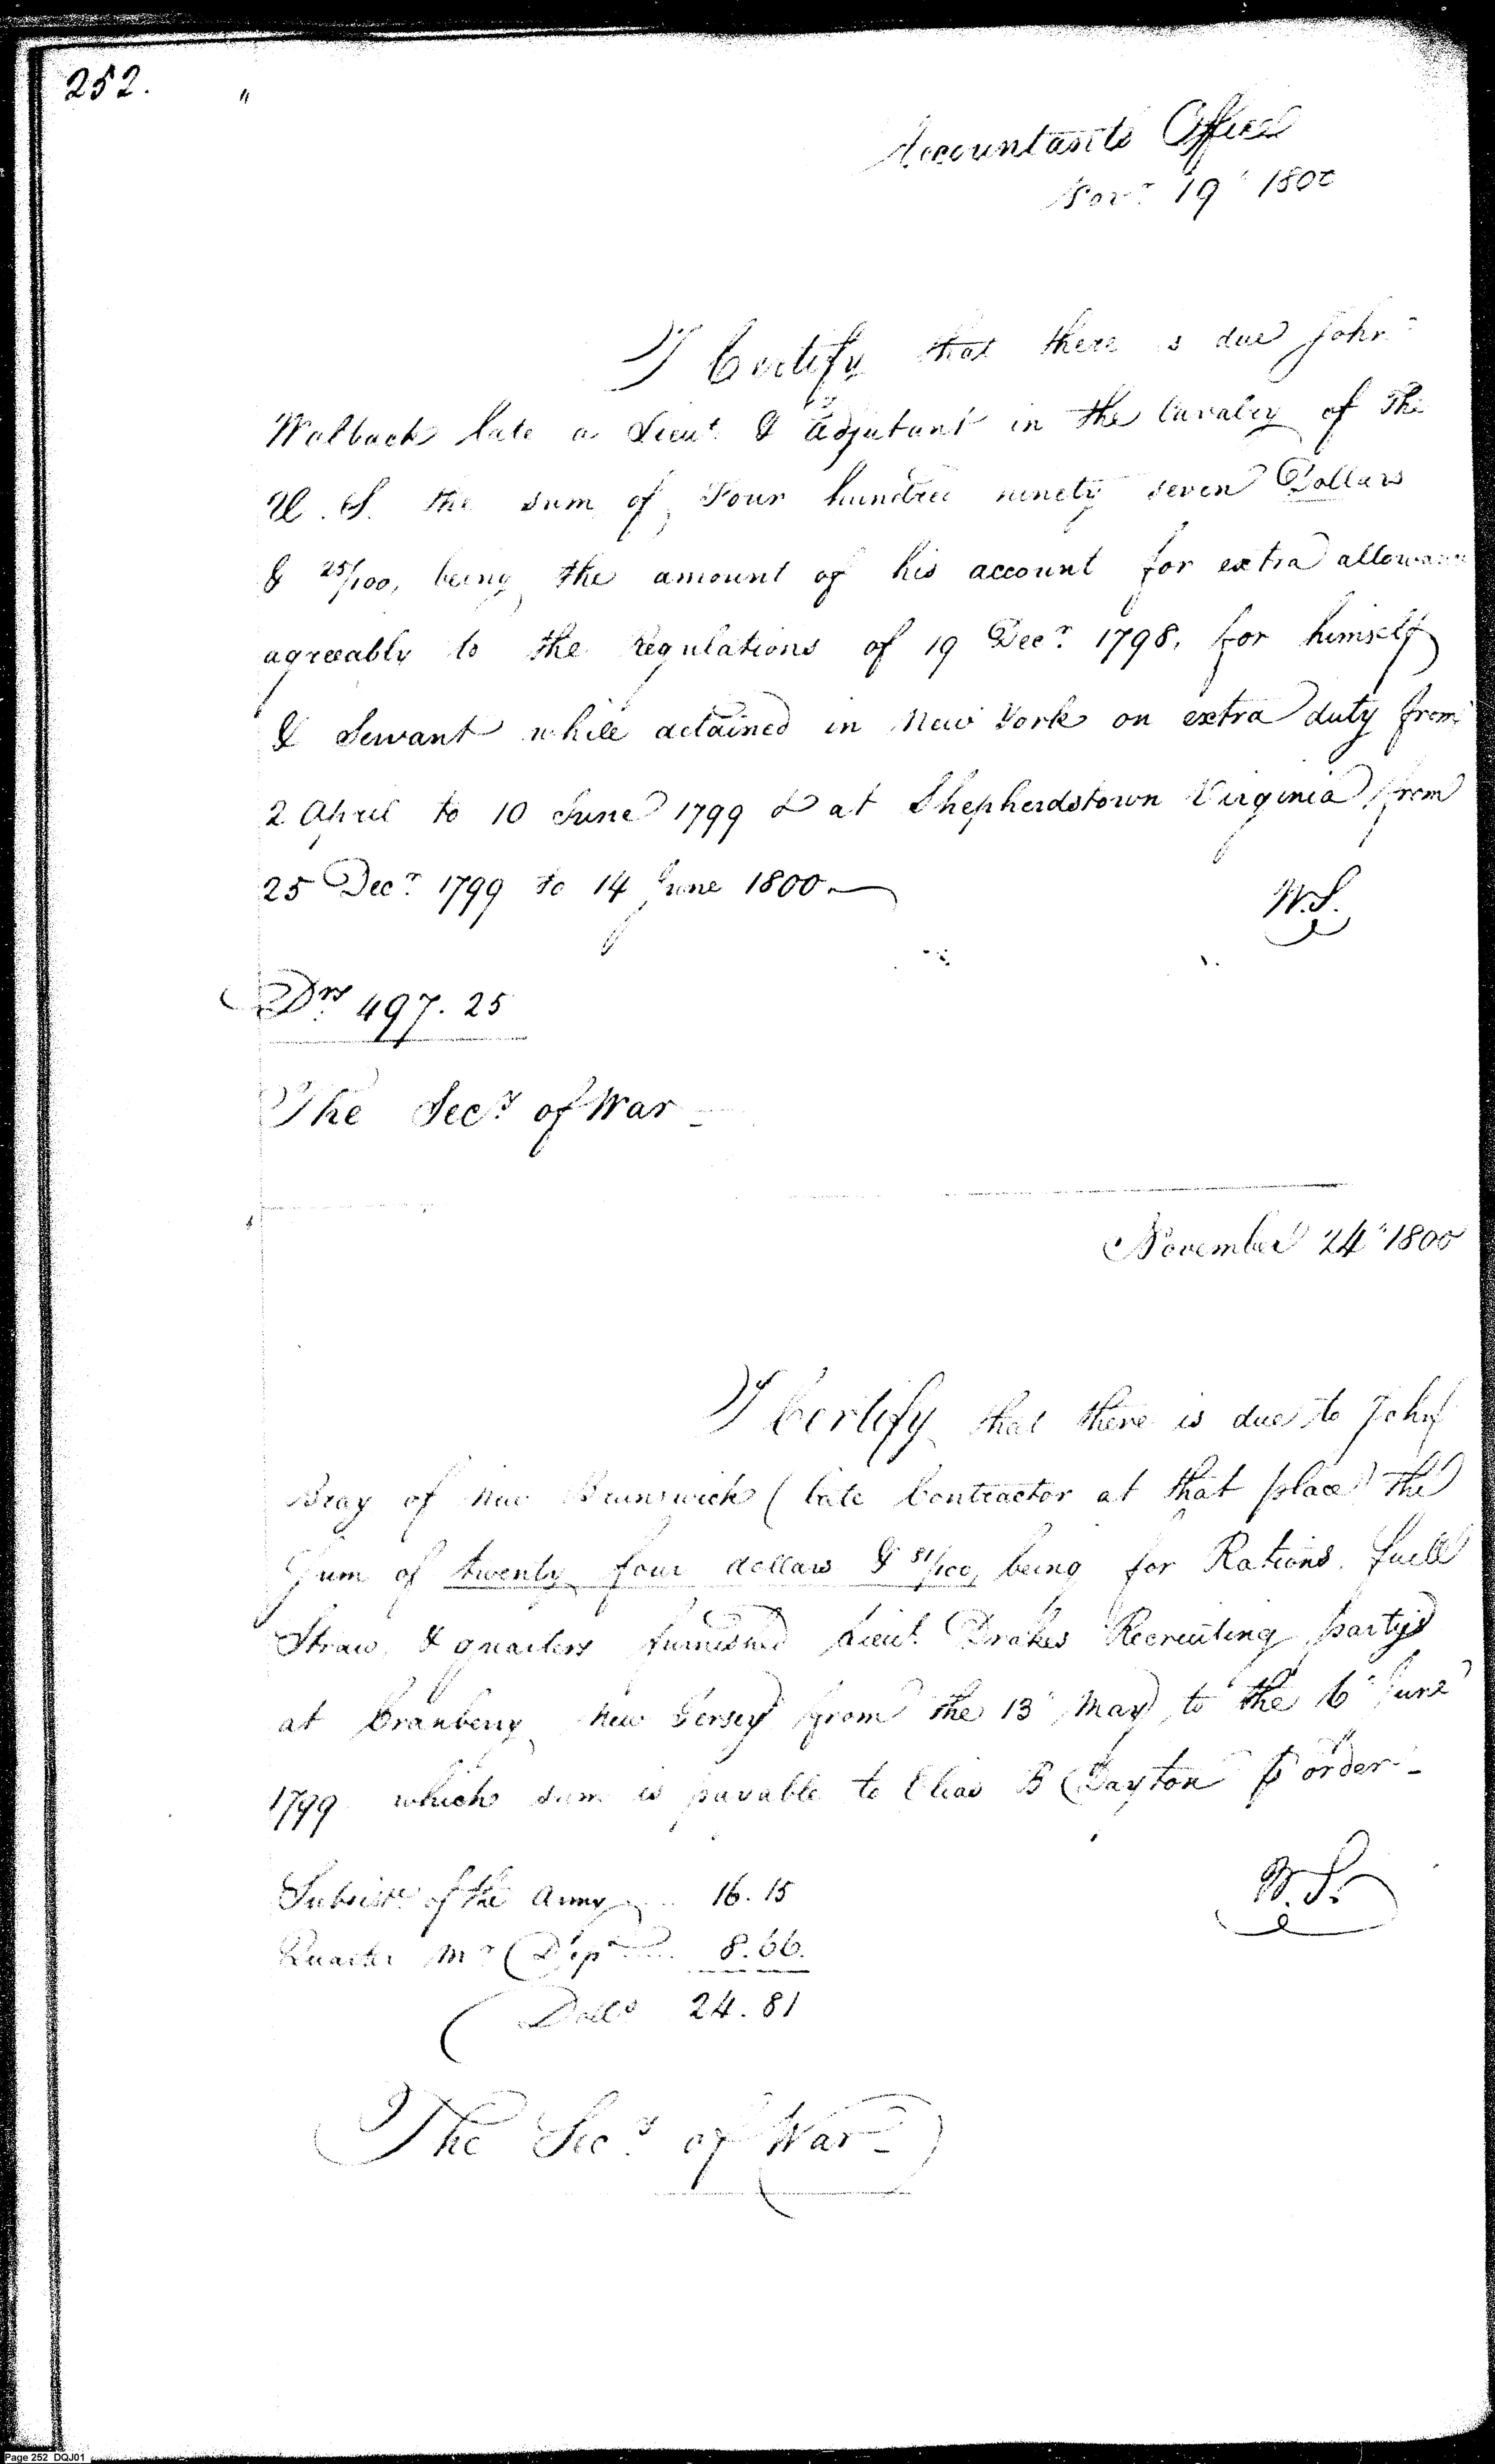 252.
Accountants Office
Novr. 19 1800
I Certify that there is due John
Walback late a Lieut. & Adjutant in the Cavalry of the
U. S. the sum of Four hundred ninety seven Dollars
& 25/100, being the amount of his account for extra allowance
agreeably to the Regulations of 19 Decr. 1798, for himself
& Servant while detained in New York on extra duty from
2 April to 10 June 1799 & at Shepherdstown Virginia from
25 Decr. 1799 to 14 June 1800
W.S.
Drs 497. 25
The Secy. of War
November 24 1800
I Certify that there is due to John
Bray of New Brunswick (late Contractor at that place) the
Sum of twenty four dollars & 81/100, being for Rations, fuell
Straw, & quarters furnished Lieut. Drakes Recruiting party
at Cranberry New Jersey from the 13 May to the 6 June
1799 which sum is payable to Elias B Dayton order
W.S.
Subsisce. of the Army 16. 15
Quarter Mr. Dept. 8. 66.
Dolls 24. 81
The Secy. of War
Page 252 DQJ01